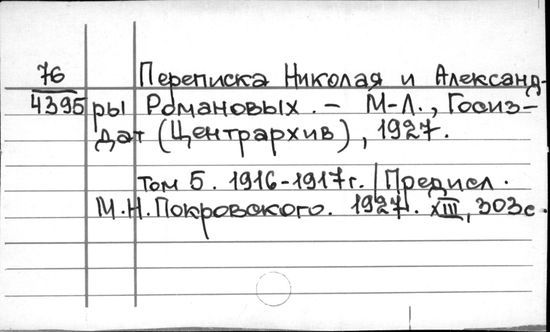 76
4395
Переписка Николая и Александ-
ры Романовых. – М-Л., Госиз-
дат (Центрархив), 1927.
Том 5. 1916-1917г. Предисл.
М.Н.Покровского. 1927. XIII, 303с.